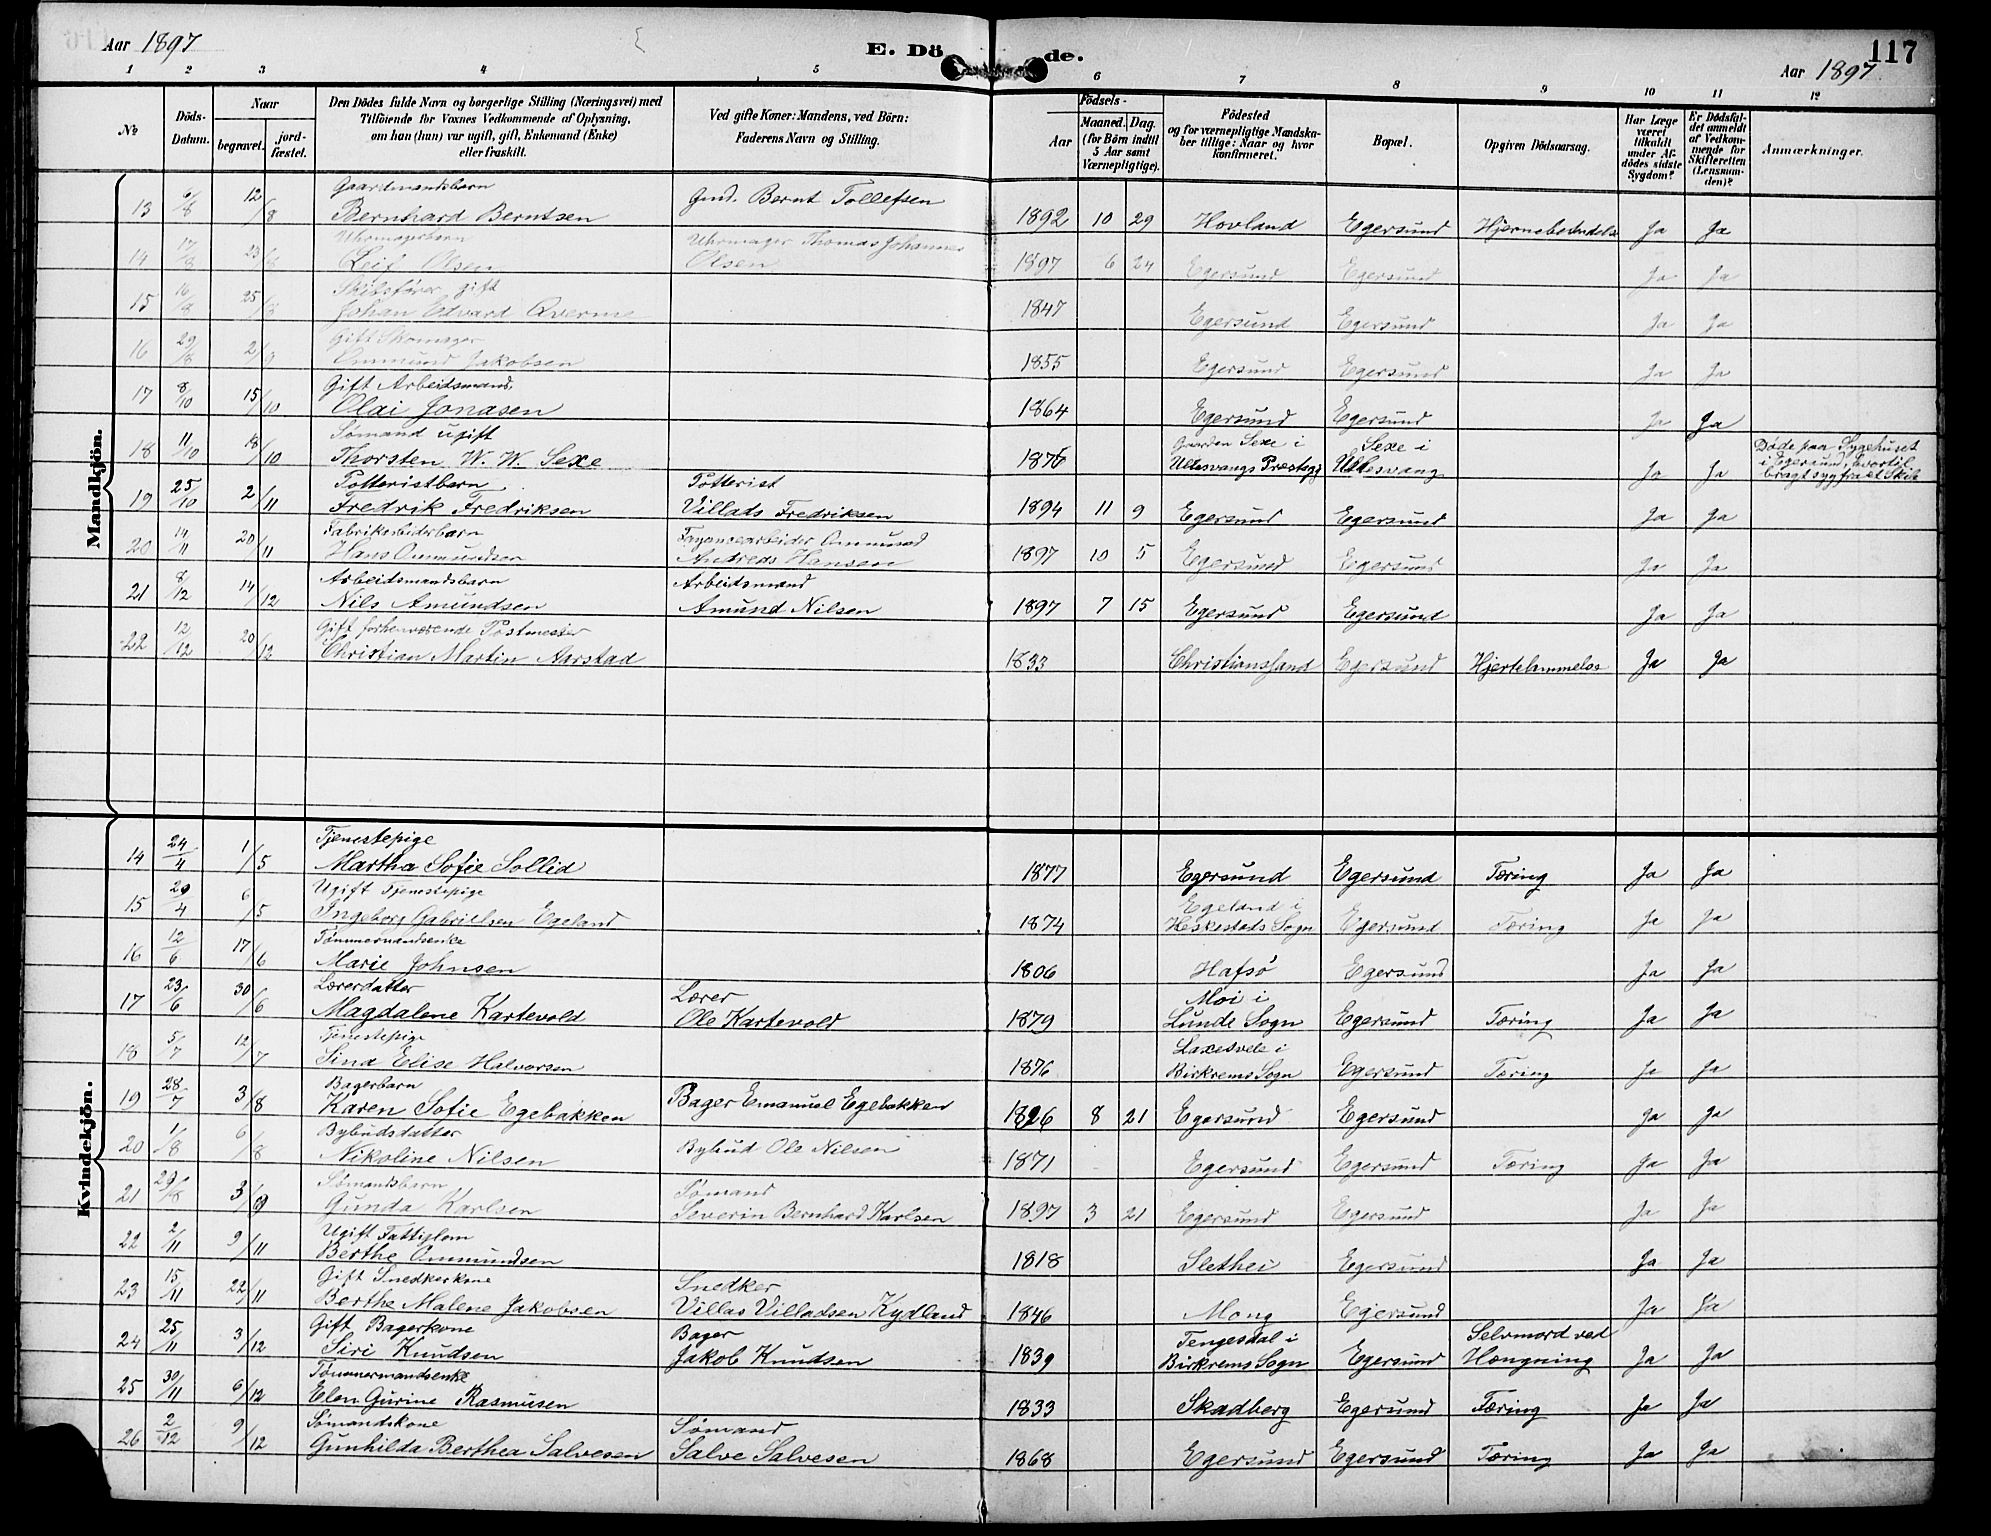 Aar 1897
E. Döde.
117
Aar 1897
1 2 3 4 5 6 7 8 9 10 11 12
№
Döds-Datum.
Naar
begravet.
jord-fæstet.
Den Dödes fulde Navn og borgerlige Stilling (Næringsvei) med
Tilföiende for Voxnes Vedkommende af Oplysning,
om han (hun) var ugift, gift, Enkemand (Enke)
eller fraskilt.
Ved gifte Koner: Mandens, ved Börn:
Faderens Navn og Stilling.
Födsels-
Aar
Maaned. Dag.
(for Börn indtil
5 Aar samt
Værnepligtige).
Födested
og for værnepligtige Mandska-
ber tillige: Naar og hvor
konfirmeret.
Bopæl.
Opgiven Dödsaarsag.
Har Læge
været
tilkaldt
under Af-
dödes sidste
Sygdom?
Er Dödsfal-
det anmeldt
af Vedkom-
mende for
Skifteretten
(Lensman-
den)?
Anmærkninger.
Mandkjön.
Gaardmandsbarn
13 6/8 12/8 Bernhard Berntsen Gmd. Bernt Tollefsen 1892 10 29 Hovland Egersund Ja Ja
Uhrmagerbarn Uhrmager Thomas Johannes
14 17/8 23/8 Leif Olsen Olsen 1897 6 24 Egersund Egersund Ja Ja
Skibsfører gift
15 25/8 Johan Edvard 1847 Egersund Egersund Ja Ja
Gift Skomager
16 29/8 2/9 Ommund Jakobsen 1855 Egersund Egersund Ja Ja
Gift Arbeidsmand
17 8/10 15/10 Olai Jonasen 1864 Egersund Egersund Ja Ja
Sømand ugift Gaarden Sexe i Sexe i Døde paa Sygehuset
18 11/10 18/10 Thorsten W. W. Sexe 1876 Ullensvangs Præstegj Ullensvang Ja Ja i Egersund, hvortil
bragt syg fra et Skib
Potteristbarn Potterist
19 25/10 2/11 Fredrik Fredriksen Villads Fredriksen 1894 11 9 Egersund Egersund Ja Ja
Fabrikarbeiderbarn Fayancearbeider Ommund
20 14/11 20/11 Hans Ommundsen Andreas Hansen 1897 10 5 Egersund Egersund Ja Ja
Arbeidsmandsbarn Arbeidsmand
21 8/12 14/12 Nils Amundsen Amund Nilsen 1897 7 15 Egersund Egersund Ja Ja
Gift forhenværende Postmester
22 12/12 20/12 Christian Martin Aarstad 1833 Christianssand Egersund Hjertelammelse Ja Ja
Kvindekjön.
Tjenestepige
14 24/4 1/5 Martha Sofie Sollid 1877 Egersund Egersund Tæring Ja Ja
Ugift Tjenestepige Egeland i
15 29/4 6/5 Ingeborg Gabrielsen Egeland 1874 Heskestads Sogn Egersund Tæring Ja Ja
Tømmermandsenke
16 12/6 17/6 Marie Johnsen 1806 Hafsö Egersund Ja Ja
Lærerdatter Lærer Moi i
17 23/6 30/6 Magdalene Kartevold Ole Kartevold 1879 Lunde Sogn Egersund Tæring Ja Ja
Tjenestepige Laxesvele i
18 5/7 12/7 Sina Elise Halvorsen 1876 Birkrems Sogn Egersund Tæring Ja Ja
Bagerbarn
19 28/7 3/8 Karen Sofie Egebakken Bager Emanuel Egebakken 8 21 Egersund Egersund Ja Ja
Bybudsdatter
20 1/8 6/8 Nikoline Nilsen Bybud Ole Nilsen 1871 Egersund Egersund Tæring Ja Ja
Sømandsbarn Sømand
21 29/8 3/9 Gunda Karlsen Severin Bernhard Karlsen 1897 3 21 Egersund Egersund Ja Ja
Ugift Fattiglem
22 2/11 9/11 Berthe Ommundsen 1818 Slethei Egersund Ja Ja
Gift Snedkerkone Snedker
23 15/11 22/11 Berthe Malene Jakobsen Villas Villadsen Kydland 1846 Mong Egersund Ja Ja
Gift Bagerkone Bager Tengesdal i Selvmord ved
24 25/11 3/12 Siri Knudsen Jakob Knudsen 1839 Birkrems Sogn Egersund Hængning Ja Ja
Tømmermandsenke
25 30/11 6/12 Elen Gurine Rasmusen 1833 Skadberg Egersund Tæring Ja Ja
Sømandskone Sømand
26 2/12 9/12 Gunhilda Berthea Salvesen Salve Salvesen 1868 Egersund Egersund Tæring Ja Ja